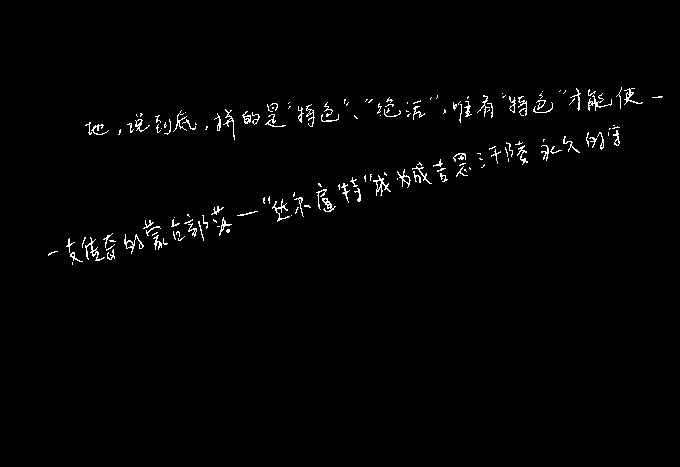 地，说到底，拼的是“特色”、“绝活”，唯有“特色”才能使一
一支传奇的蒙古部落—“达尔扈特”成为成吉思汗陵永久的守